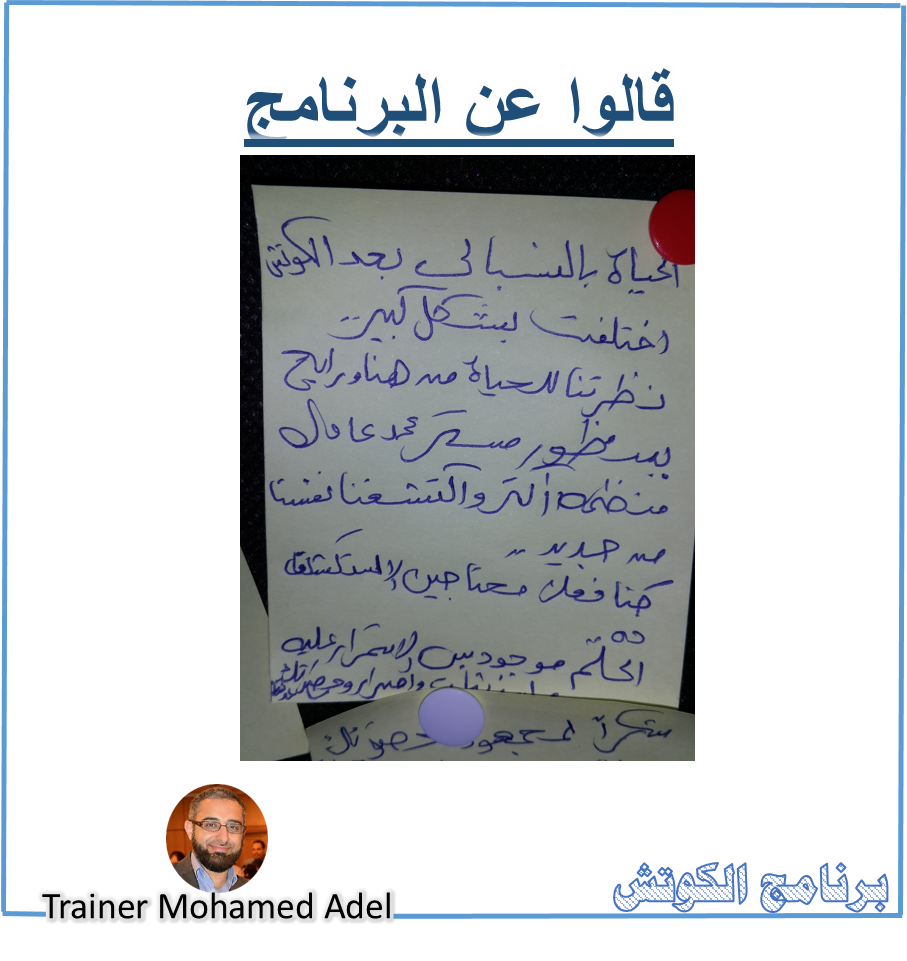 قالوا عن البرنامج
الحياة بالنسبالى بعد الكوتش
اختلفت بشكل كبير ..
نظرتنا للحياة من هنا ورايح
مستر محمد عادل
منظمه أكتر واكتشفنا نفسنا
من جديد ..
كنا فعلا محتاجين الاستكشاف
ده
الحلم موجود بس الاستمرار عليه
شكراً لمجهود حضرتك
Trainer Mohamed Adel
برنامج الكوتش